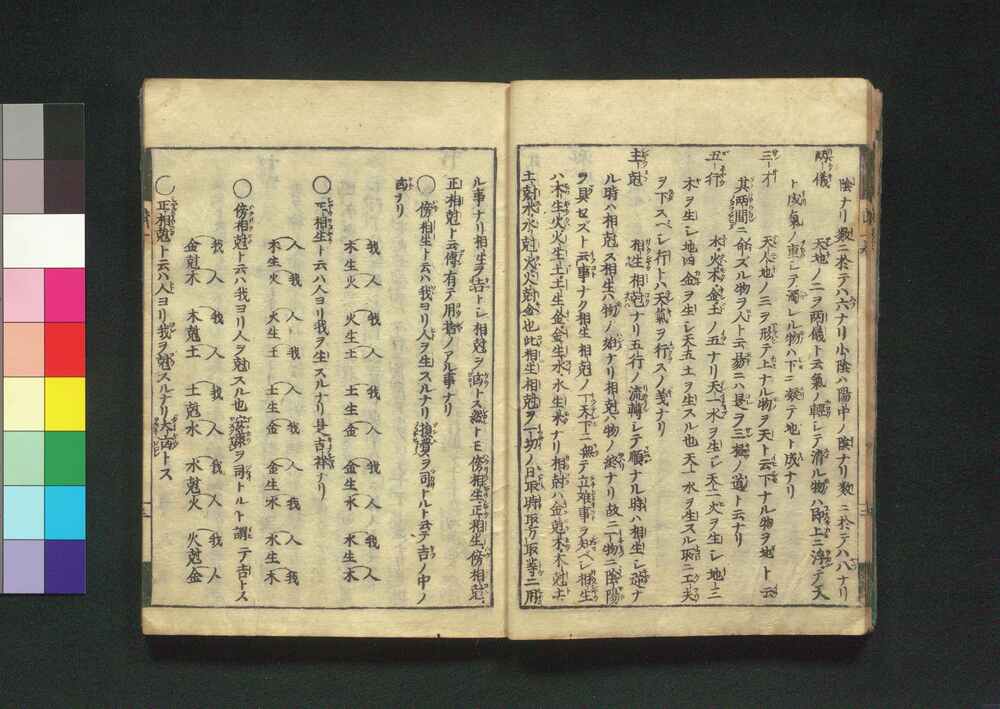 陰ナリ数ニ於テハ六ナリ小陰ハ陽中ノ陰ナリ数ニ於テハ八ナリ
両儀 天地ノ二ヲ両儀ト云氣ノ輕シテ清ル物ハ即上ニ浮テ天
ト成氣ノ重シテ濁レル物ハ下ニ凝テ地ト成ナリ
三才 天人地ノ三ヲ形テ上ナル物ヲ天ト云下ナル物ヲ地ト云
其両間ニ命ズル物ヲ人ト云易ニハ是ヲ三極ノ道ト云ナリ
五行 水火木金土ノ五ナリ天一水ヲ生シ地二火ヲ生シ天三
木ヲ生シ地四金ヲ生シ天五土ヲ生スル也天一水ヲ生スル
ヲ下スベシ行トハ天氣ヲ行スノ義ナリ
生尅 相生相尅ナリ五行ノ流轉シテ順ナル時ハ相生シ逆ナ
ル時ハ相尅ス相生ハ物ノ始ナリ相尅ハ物ノ終ナリ故ニ一物ニ陰陽
ヲ具セズト云事ナク相生相尅ノ丁天下ニ無テ立難事ヲ知ベシ相生
ハ木生火火生土土生金金生水水生木ナリ相尅ハ金尅木木尅土
土尅水水尅火火尅金也此相生相尅ヲ一切ノ日取時取方取等ニ用
ル事ナリ相生ヲ吉トシ相尅ヲ凶トス然トモ傍相生正相生傍相尅
正相尅ト云傳有テ用捨ノアル事ナリ
○傍相生ト云ハ我ヨリ人ヲ生スルナリ損費ヲ司トルト云テ吉ノ中ノ
凶ナリ
我 人 我 人 我 人 我 人 我 人
木生火 火生土 土生金 金生水 水生木
○正相生ト云ハ人ヨリ我ヲ生スルナリ是吉祥ナリ
人 我 人 我 人 我 人 我 人 我
木生火 火生土 土生金 金生水 水生木
○傍相尅ト云ハ我ヨリ人ヲ尅スル也安楽ヲ司トルト謂テ吉トス
我 人 我 人 我 人 我 人 我 人
金尅木 木尅土 土尅水 水尅火 火尅金
○正相尅ト云ハ人ヨリ我ヲ尅スルナリ大凶トス